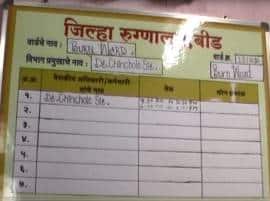 जिल्हा रुग्णालय बीड
वार्डचे नाव : BURN WARD. वार्ड क्र.
विभाग प्रमुखाचे नाव : DR. Chinchole Ste. Burn Ward
अ.क्र. वैद्यकीय अधिकारी/कर्मचारी यांचे नाव वेळ
१. DR. Chinchole Ste.
२.
३.
४.
५.
६.
७.